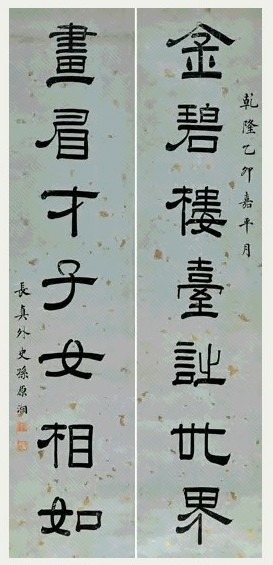 乾隆乙卯嘉平月
金碧樓臺詩世界
畫眉才子女相如
長真外史孫原湘